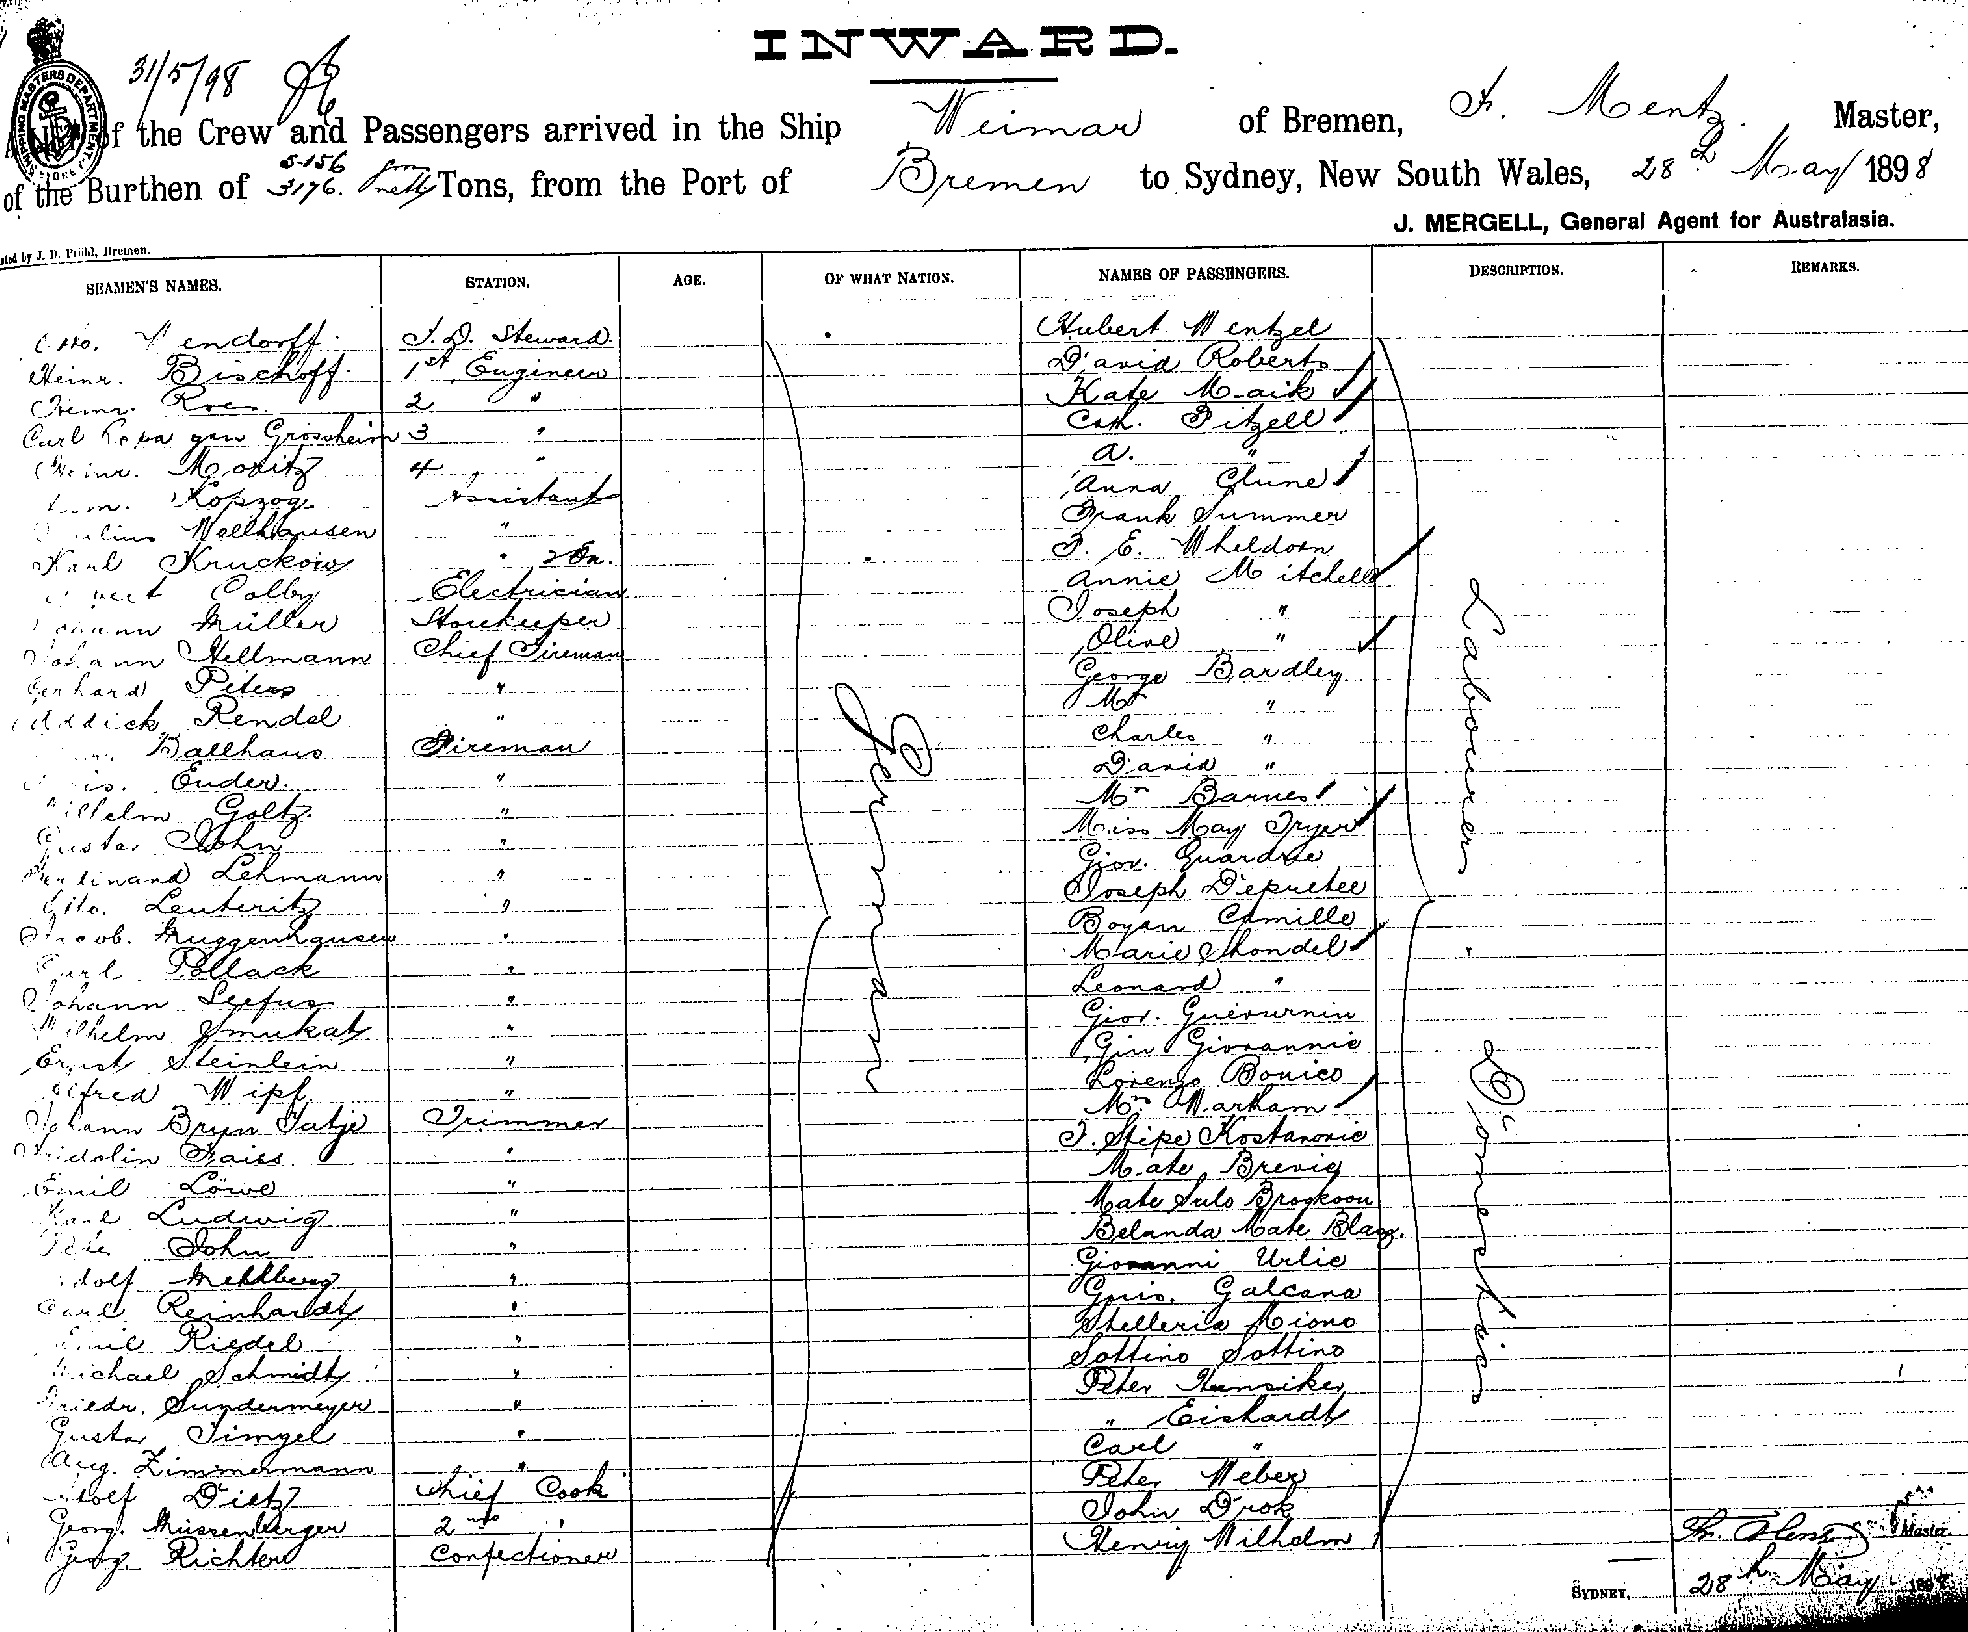 31/5/98
INWARD.
of the Crew and Passengers arrived in the Ship Weimar of Bremen, F. Mentz. Master,
5156
of the Burthen of 3176. Tons, from the Port of Bremen to Sydney, New South Wales, 28th May 1898
J. MERGELL, General Agent for Australasia.
J. D. Prühl, Bremen.
SEAMEN'S NAMES. STATION. AGE. OF WHAT NATION. NAMES OF PASSENGERS. DESCRIPTION. REMARKS.
Otto. Wendorff. Steward Hubert Wentzel
Heinr. Bischoff. 1st Engineer David Roberts
2 " Kate Maik
Carl gen Grossheim 3 " Cath. Fitzell
Heinr. Moritz 4 " A. "
Kopzog Assistant Anna Clune
Julius Wellhausen " Frank Summer
Karl Kruckow " F. E. Wheldorn
Colby Electrician Annie Mitchell
Johann Müller Storekeeper Joseph "
Johann Hellmann Chief Fireman Olive "
Gerhard Peters " George Bardley
Addick Rendel " Mr "
Ballhaus Fireman Charles "
Euder. " David "
Wilhelm Goltz. " Barnes
Gustav John " Miss May Fryer
Ferdinand Lehmann " Giov. Guardue
Otto. Leuteritz " Joseph Depretee
Jacob. Muggenhausen " Boyan Camille
Carl Pollack " Marie Shondel
Johann Seefus " Leonard "
Wilhelm " Giov.
Ernst Steinlein " Giovannie
Alfred Wipf " Lorenzo Bonico
Johann Bryn Tatje Trimmer Warham
Fridolin Faiss " F. Stipe Kostanovic
Emil Löwe " Mate Brevig
Karl Ludwig " Mate Sulo
Peter John " Belanda Mate
Adolf Mehlberg " Giovanni Urlic
Carl Reinhardt " Galcana
Emil Riedel " Stelleria Miono
Michael Schmidt " Sottino Sottino
Friedr. Sundermeyer " Peter Hunsiker
Gustav Timgel " " Eishardt
Aug. Zimmermann " Carl "
Adolf Dietz Chief Cook Peter Weber
Georg. Müssenberger 2nd " John Drok
Georg. Richter Confectioner Henry Wilhelm
German
Labourer
Domestics
Master.
SYDNEY, 28th May 189